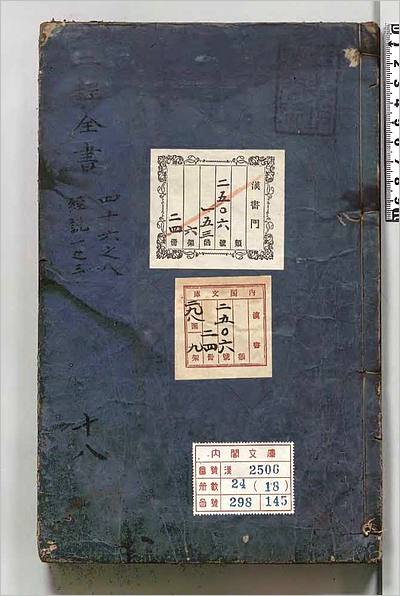 二程全書
四十六之八
經說一之三
十八
漢書門
二五〇六
號
一五三
函
六
架
二四
冊
類
內閣文庫
漢書
類
二五〇六
號
二四
冊
九
架
函
內閣文庫
番號 漢 2506
冊數 24 (18)
函號 298 145